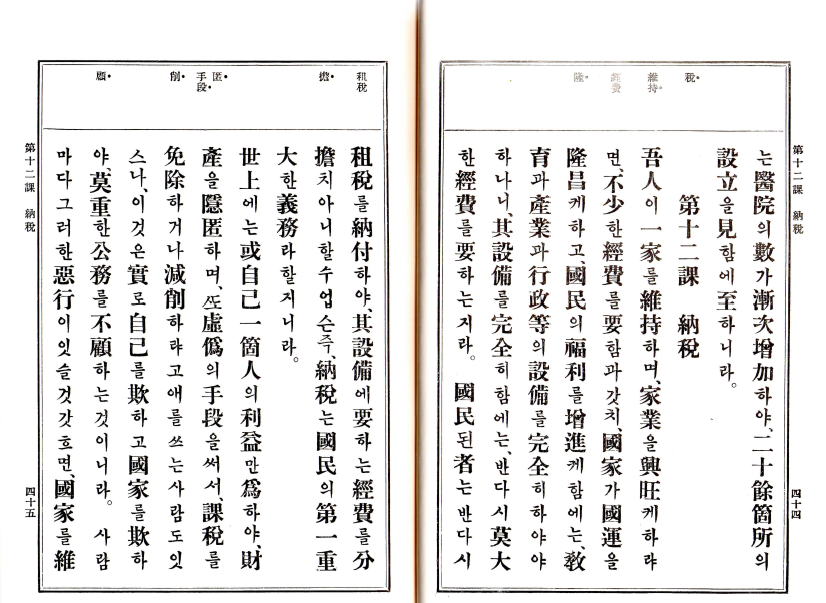 第十二課 納稅
四十四
稅•
維持•
經費
隆•
는醫院의數가漸次增加하야、二十餘箇所의
設立을見함에至하니라。
第十二課 納稅
吾人이一家를維持하며、家業을興旺케하랴
면、不少한經費를要함과갓치、國家가國運을
隆昌케하고、國民의福利를增進케함에는、敎
育과產業과行政等의設備를完全히하야야
하나니、其設備를完全히함에는、반다시莫大
한經費를要하는지라。 國民된者는반다시
租稅
擔•
匿•
手段•
削•
顧•
租稅를納付하야、其設備에要하는經費를分
擔치아니할수업슨즉、納稅는國民의第一重
大한義務라할지니라。
世上에는或自己一箇人의利益만爲하야、財
產을隱匿하며、ᄯᅩ虛僞의手段을써서、課稅를
免除하거나減削하랴고애를쓰는사람도잇
스나、이것은實로自己를欺하고國家를欺하
야、莫重한公務를不顧하는것이니라。 사람
마다그러한惡行이잇슬것갓흐면、國家를維
第十二課 納稅
四十五